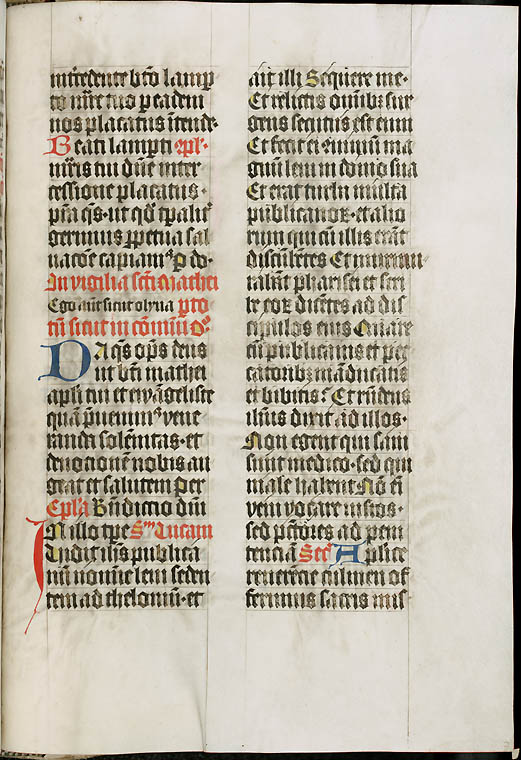 intercedente bto lamp
to mre tuo p eadem
nos placatus itende.
Beati lampti epl.
mris tui dne inter
cessione placatus.
pta qs. ut qd tpali
gerimus ppetua sal
uacoe capiam. P do.
In vigilia scti Mathei
Ego aut sicut oliua pro
tu sicut in comuni Or
Da qs ops deus
ut bti mathei
apli tui et ewageliste
qua puenim vene
randa solenitas. et
deuotione nobis au
geat et salutem Per
Epla Bndictio dni
In illo tpe Sm Lucam
Uidit ihs publica
nu nomine leui seden
tem ad theloniu. et
ait illi Sequere me.
Et relictis omibz sur
gens secutus est eum
Et fecit ei conuiuiu ma
gnu leui in domo sua
Et erat turba multa
publicanoꝝ. et alio
rum qui cu illis erat
discubetes Et murmu
rabat pharisei et scri
be eoꝝ dicetes ad dis
cipulos eius Quare
cu publicanis et pec
catoribz manducatis
et bibitis? Et rndens
ihus dixit ad illos.
Non egent qui sani
sunt medico. sed qui
male habent No ei
veni vocare iustos.
sed pctores ad peni
tencia Secr Aplice
reuerecie culmen of
ferimus sacris mis